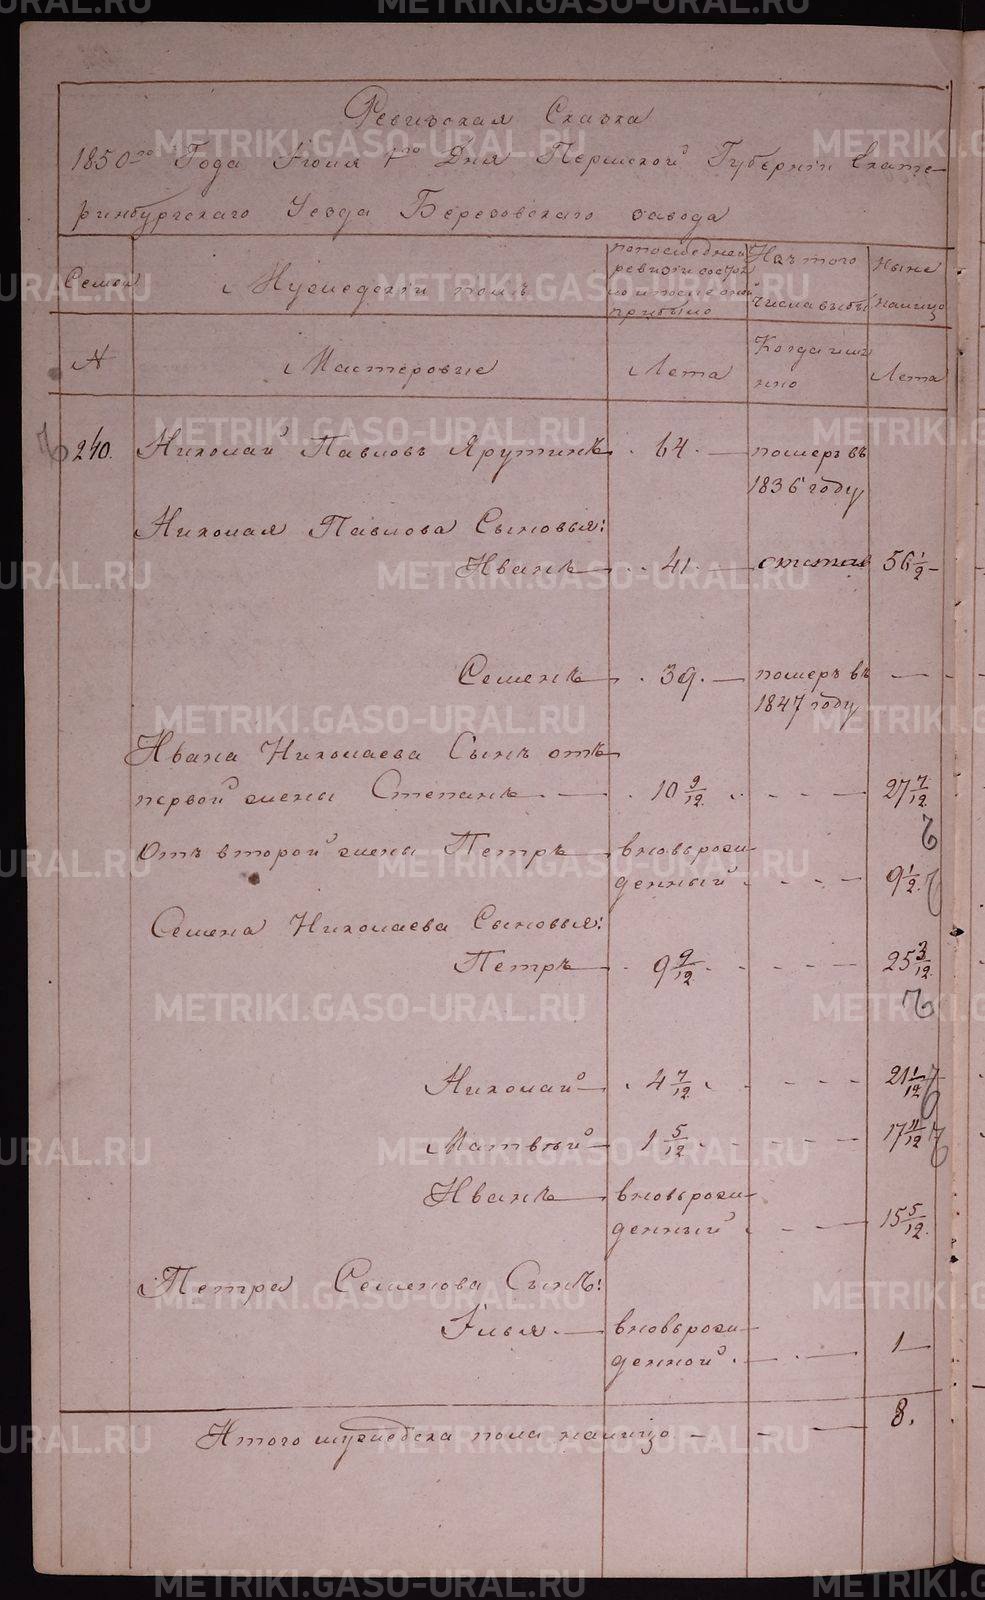 Ревизская Сказка
1850го Года Іюня 1го Дня Пермской Губерніи Екате-
ринбургскаго Уезда Березовскаго завода
Семьи
Мужескій полъ
по последней
ревизіи состоя
ло и после оной
прибыло
Изъ того
числа выбы
Ныне
налицо
N
Мастеровые
Лета
Когда имен
нно
Лета
240. Николай Павловъ Ярутинъ 64. померъ въ
1836 году
Николая Павлова Сыновья:
Иванъ 41 56 1/2
Семенъ 39. померъ въ
1847 году
Ивана Николаева Сынъ отъ
первой жены Степанъ 10 9/12 27 7/12
Отъ второй жены Петръ вновьрож
денный 9 1/2
Семена Николаева Сыновья:
Петръ 9 9/12 25 3/12
Николай 4 7/12 21 1/12
Матвѣй 1 5/12 17 11/12
Иванъ вновьрож
денный 15 5/12
Петра Семенова Сынъ:
Илья вновьрож
денной 1
Итого мужеска пола налицо 8.
METRIKI.GASO-URAL.RU